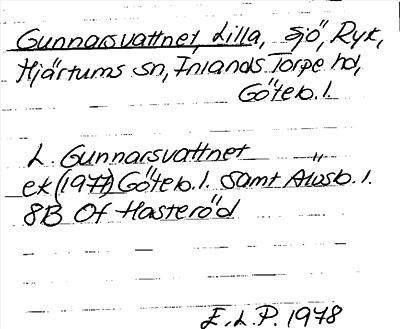 Gunnarsvattnet, Lilla, sjö, Ryk,
Hjärtums sn, Inlands Torpe hd,
Göteb. l.
L. Gunnarsvattnet
ek (1977) Göteb. l. samt Älvsb. l.
8B 0f Hasteröd
E. L. P. 1978